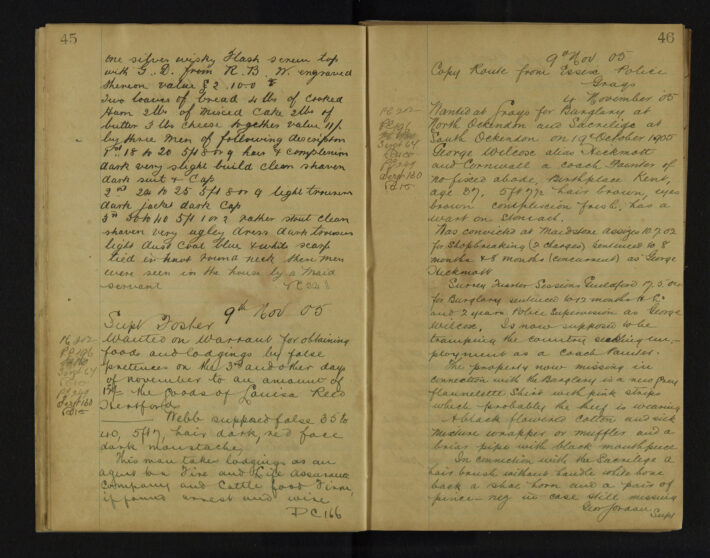 45
one silver wisky Flask screw top
with G. D. from R. B. W. engraved
thereon value £2.10.0
Two loaves of bread 4 lbs of cooked
Ham 2 lbs of mixed Cake 2 lbs of
butter 3 lbs cheese together value 11/-
by three Men of following description
1st 18 to 20 5ft 8 or 9 hair & complexion
dark very slight build clean shaven
dark suit & Cap
2nd 24 to 25 5ft 8 or 9 light trousers
dark jacket dark Cap
3rd 30 to 40 5ft 1 or 2 rather stout clean
shaven very ugley dress dark trousers
light dust Coat blue & white scarf
tied in knot round neck these men
were seen in the house by a Maid
servant
9th Nov 05
Supt Foster
PC 202
PC 196
Sergt 64
Sergt 130
Wanted on Warrant for obtaining
foods and lodgings by false
pretences on the 3rd and other days
of november to an amount of
the goods of Louisa Reed
Hertford
Webb supposed false 35 to
40, 5ft 7, hair dark, red face
dark moustache,
This man takes lodgings as an
agent on Fire and Life Assurance
Company and Cattle food Firm,
if found arrest and wire
PC 166
46
9th Nov 05
Copy Route from Essex Police
Grays
4 November 05
PC 202
PC 196
Sergt 64
Sergt 130
Wanted at Grays for Burglary at
North Ockendon and Sacrilege at
South Ockendon on 19th October 1905
George Wilcose alias Heckmott
and Cornwell a coach Painter of
no fixed abode, Birthplace Kent,
age 37, 5ft 7½ hair brown, eyes
brown complexion fresh, has a
wart on stomach.
Was convicted at Maidstone assizes 10.7.02
for Shopbreaking (2 charges) sentenced to 8
months & 8 months (concurrent) as George
Heckmott
Surrey Quarter Sessions Guildford 17.5.04
for Burglary sentenced to 12 months H.L.
and 2 years Police Supervision as George
Wilcose. Is now supposed to be
tramping the country seeking em-
ployment as a Coach Painter.
The property now missing in
connection with the Burglary is a new Grey
flannelette Shirt with pink stripe
which probably the thief is wearing
A black flowered Cotton and silk
mixture wrapper or muffler and a
briar pipe with black mouthpiece
In connection with the Sacrilege a
hair brush without handle white bone
back a shoe horn and a pair of
pince-neg in case still missing
Geo Jordan
Supt